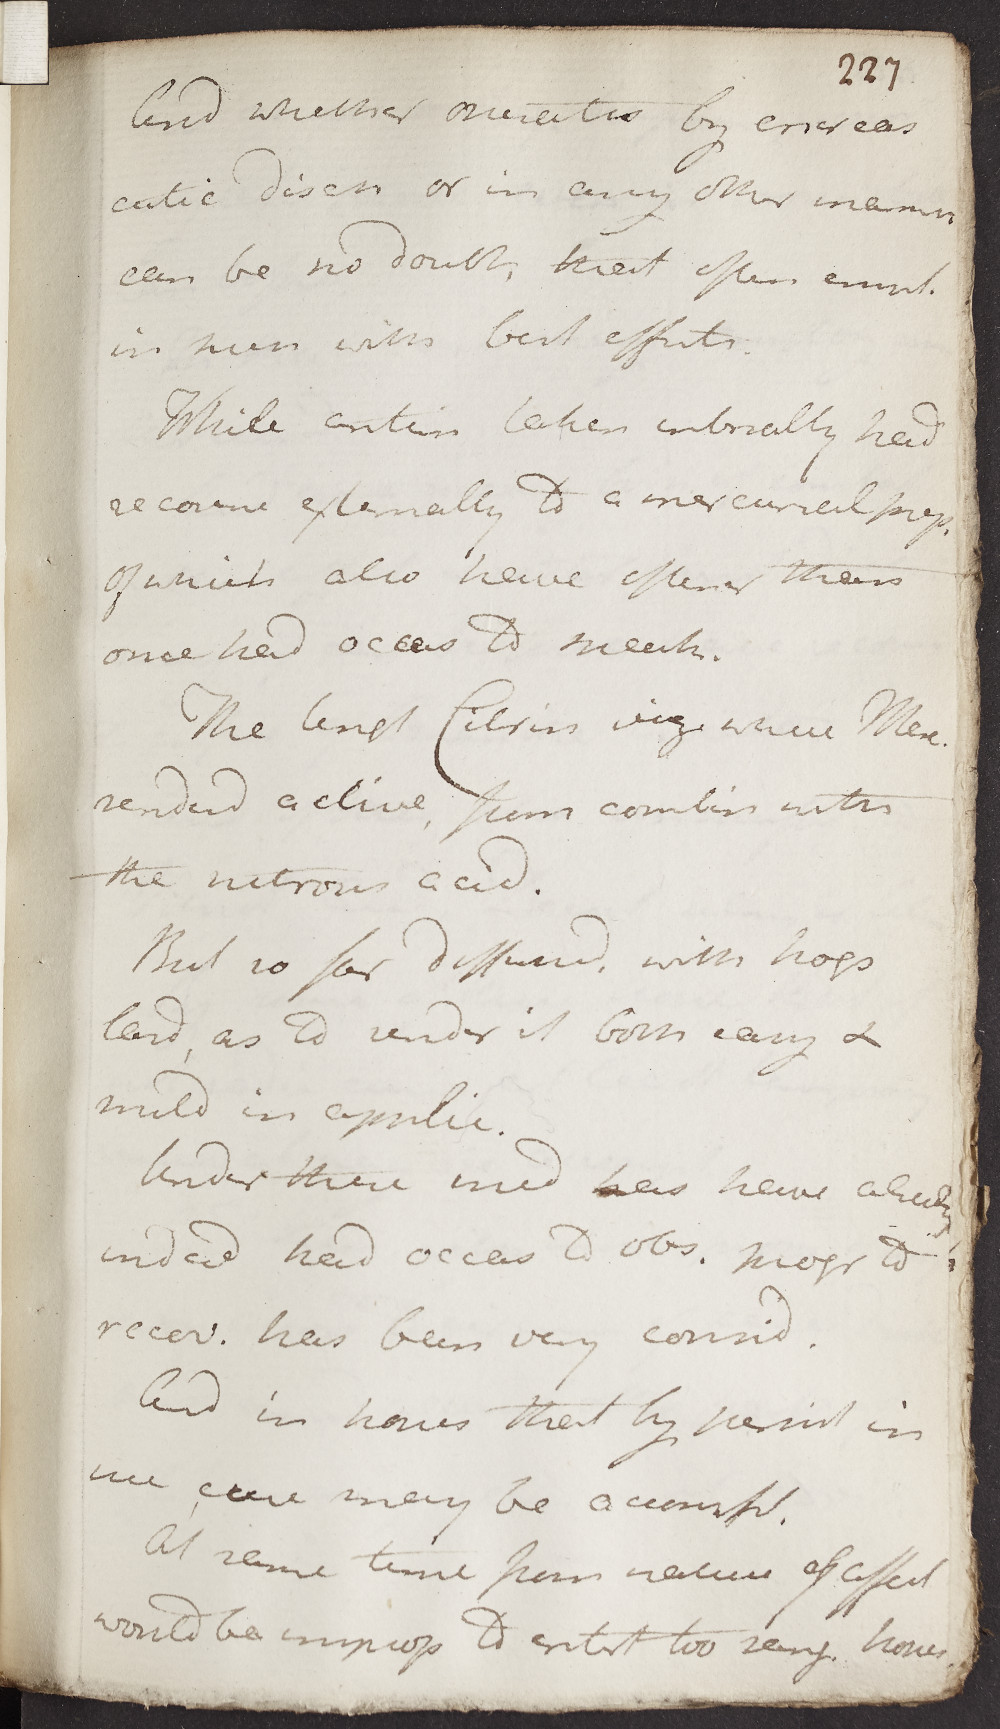 227
And whether operates by increas
cutic disch or in any other manner
can be no doubt, that often empl.
in such with best effects.
While antim taken internally had
recourse externally to a mercurial prep.
of which also have oftener than
once had occas to ment.
The Ungt Citrin viz. where Mer.
rendered active, from combin with
the nitrous acid.
But so far diffused, with hogs
lard, as to render it both easy &
mild in applic.
Under these med has have already
indeed had occas to obs. progr to
recov. has been very consid.
And in hopes that by persist in
use, cure may be accompl.
At same time from nature of affect
would be improp to entert too sang. hopes.